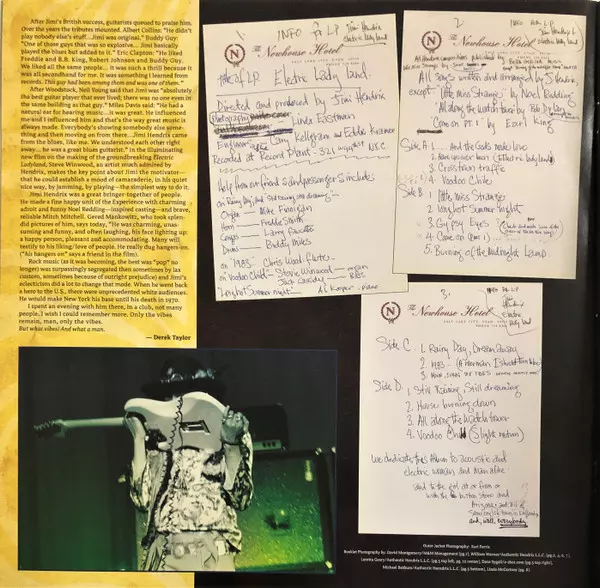 After Jimi's British success, guitarists queued to praise him.
Over the years the tributes mounted. Albert Collins: "He didn't
play nobody else's stuff. ...Jimi was original." Buddy Guy:
"One of those guys that was so explosive... Jimi basically
played the blues but added to it." Eric Clapton: "He liked
Freddie and B.B. King, Robert Johnson and Buddy Guy.
We liked all the same people... it was such a thrill because it
was all secondhand for me. It was something I learned from
records. This guy had been among them and was one of them."
After Woodstock, Neil Young said that Jimi was "absolutely
the best guitar player that ever lived; there was no one even in
the same building as that guy." Miles Davis said: "He had a
natural ear for hearing music... it was great. He influenced
me and I influenced him and that's the way great music is
always made. Everybody's showing somebody else some-
thing and then moving on from there. ...Jimi Hendrix came
from the blues, like me. We understood each other right
away... he was a great blues guitarist." In the illuminating
new film on the making of the groundbreaking Electric
Ladyland, Steve Winwood, an artist much admired by
Hendrix, makes the key point about Jimi the motivator—
that he could establish a mood of camaraderie, in his quiet
nice way, by jamming, by playing—the simplest way to do it.
Jimi Hendrix was a great bringer-together of people.
He made a fine happy unit of the Experience with charming
adroit and funny Noel Redding—inspired casting—and brave,
reliable Mitch Mitchell. Gered Mankowitz, who took splen-
did pictures of him, says today, "He was charming, unas-
suming and funny, and often laughing, his face lighting up:
a happy person, pleasant and accommodating. Many will
testify to his liking/love of people. He really dug hangers-on.
("Air hangers on" says a friend in the film).
Rock music (as it was becoming, the best was "pop" no
longer) was surprisingly segregated then sometimes by lax
custom, sometimes because of outright prejudice) and Jimi's
eclecticism did a lot to change that mode. When he went back
a hero to the U.S., there were unprecedented white audiences.
He would make New York his base until his death in 1970.
I spent an evening with him there, in a club, not many
people, I wish I could remember more. Only the vibes
remain, man, only the vibes.
But what vibes! And what a man.
— Derek Taylor
1
INFO for LP
Jimi Hendrix
electric lady land
N
The Newhouse Hotel
title of LP Electric Lady Land.
Directed and produced by Jimi Hendrix
Photography Linda Eastman
Engineers Gary Kellgram and Eddie Kramer
Recorded at Record Plant - 321 N.Y.C
Help from our friends and passengers includes
on Rainy Day, and Still raining still dreaming
Organ - Mike Finnigan
Horn - Freddie Smith
Congas - Larry Faucette
Drums - Buddy Miles
on "1983" - Chris Wood - flute
on Voodoo Chile - Steve Winwood - organ
Jack Casidy - Bass
"Long hot Summer night" - Al Kooper - piano
2
INFO FOR LP
Jimi Hendrix
electric lady land
N
The Newhouse Hotel
All Songs written and arranged by J. Hendrix
except "little miss strange" by Noel Redding
"All along the watch tower" by Bob Dylan
"Come on PT. 1" by Earl King
Side A 1. ... And the Gods made love
2. Have you ever been (Electric Lady land)
3. Crosstown traffic
4. Voodoo Chile
Side B 1. little miss Strange
2. long hot Summer night
3. Gypsy Eyes
4. Come on (PART 1)
5. Burning of the midnight Lamp
3.
INFO for LP
Jimi Hendrix
electric lady land
N
The Newhouse Hotel
SALT LAKE CITY, UTAH
Side C 1. Rainy Day, Dream Away
2. 1983 (A merman I should turn to be)
3. MOON, TURN THE TIDES
Side D 1. Still Raining, Still dreaming
2. House burning down
3. All along the Watch tower
4. Voodoo Child (Slight return)
we dedicate this Album to acoustic and
electric woman and man alike
and to the girl at or from or
with the button store and
Arizona, and
and, well, Everybody
Outer Jacket Photography: Karl Ferris
Booklet Photography by: David Montgomery/M&M Management (pg 1), William Warner/Authentic Hendrix L.L.C.
Michael Bobbala/Authentic Hendrix L.L.C. (pg 5 bottom), Linda McCartney (pg. 8)